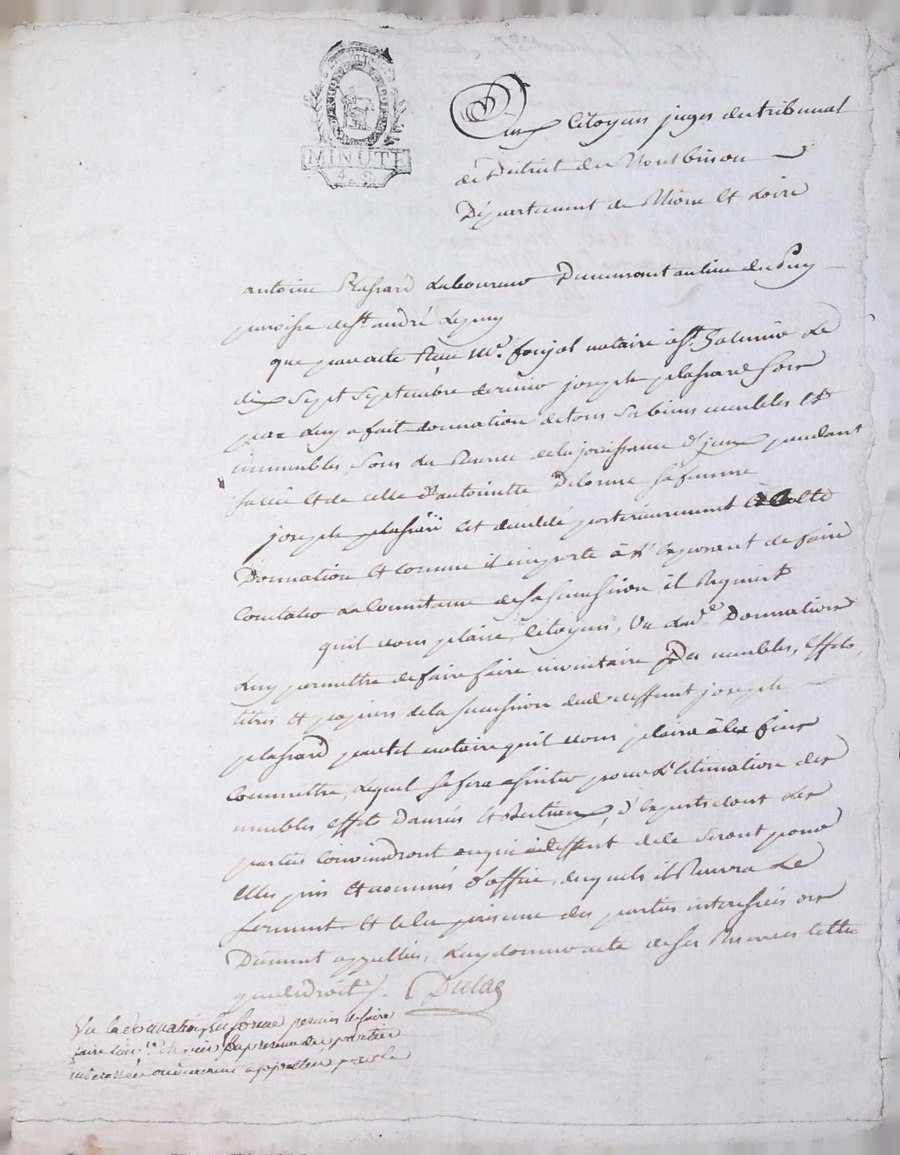 MINUTE
4. S.
Aux Citoyens juges du tribunal
de District de Montbrison
Département de Rhone Et Loire
antoine Plassard Laboureur Dumont au lieu du Puy
paroisse de St. andré Le puy
que par acte Recu Me. foujol notaire à St. Galmier Le
dix Sept Septembre dernier joseph plassard Son
par Luy a fait donnation de tous Ses biens meubles Et
immeubles, Sous la Reserve de la joüissance d'jceux pendant
Sa vie Et de celle d'antoinette Delorme Sa femme
joseph plassard Est decédé posterieurement à cette
Donnation Et comme il importe à l'Exposant de faire
Constater La Consistance de Sa Succession, il Requiert
qu'il vous plaise, Citoyens, Vu lad.e Donnation
Luy permettre de faire faire inventaire Des meubles, effets,
titres Et papiers de la Succession dud. deffunt joseph
plassard par tel notaire qu'il vous plaira à Ces fins
Commettre, Lequel Se fera assister pour L'Estimation des
meubles, effets Danrés Et Bestiaux, d'Experts dont Les
parties Conviendront ou qui à deffaut de ce Seront pour
Elles pris Et nommés d'office, desquels il Recevra Le
Serment Et ce En presence des parties interessées ou
Dument appellées, Luy donner acte de Ses Reserves telles
que de droit. Dulac
Vu la donnation, Permis de faire
faire l'inv.re Requis En presence des parties
interessées ou dument appellées par le